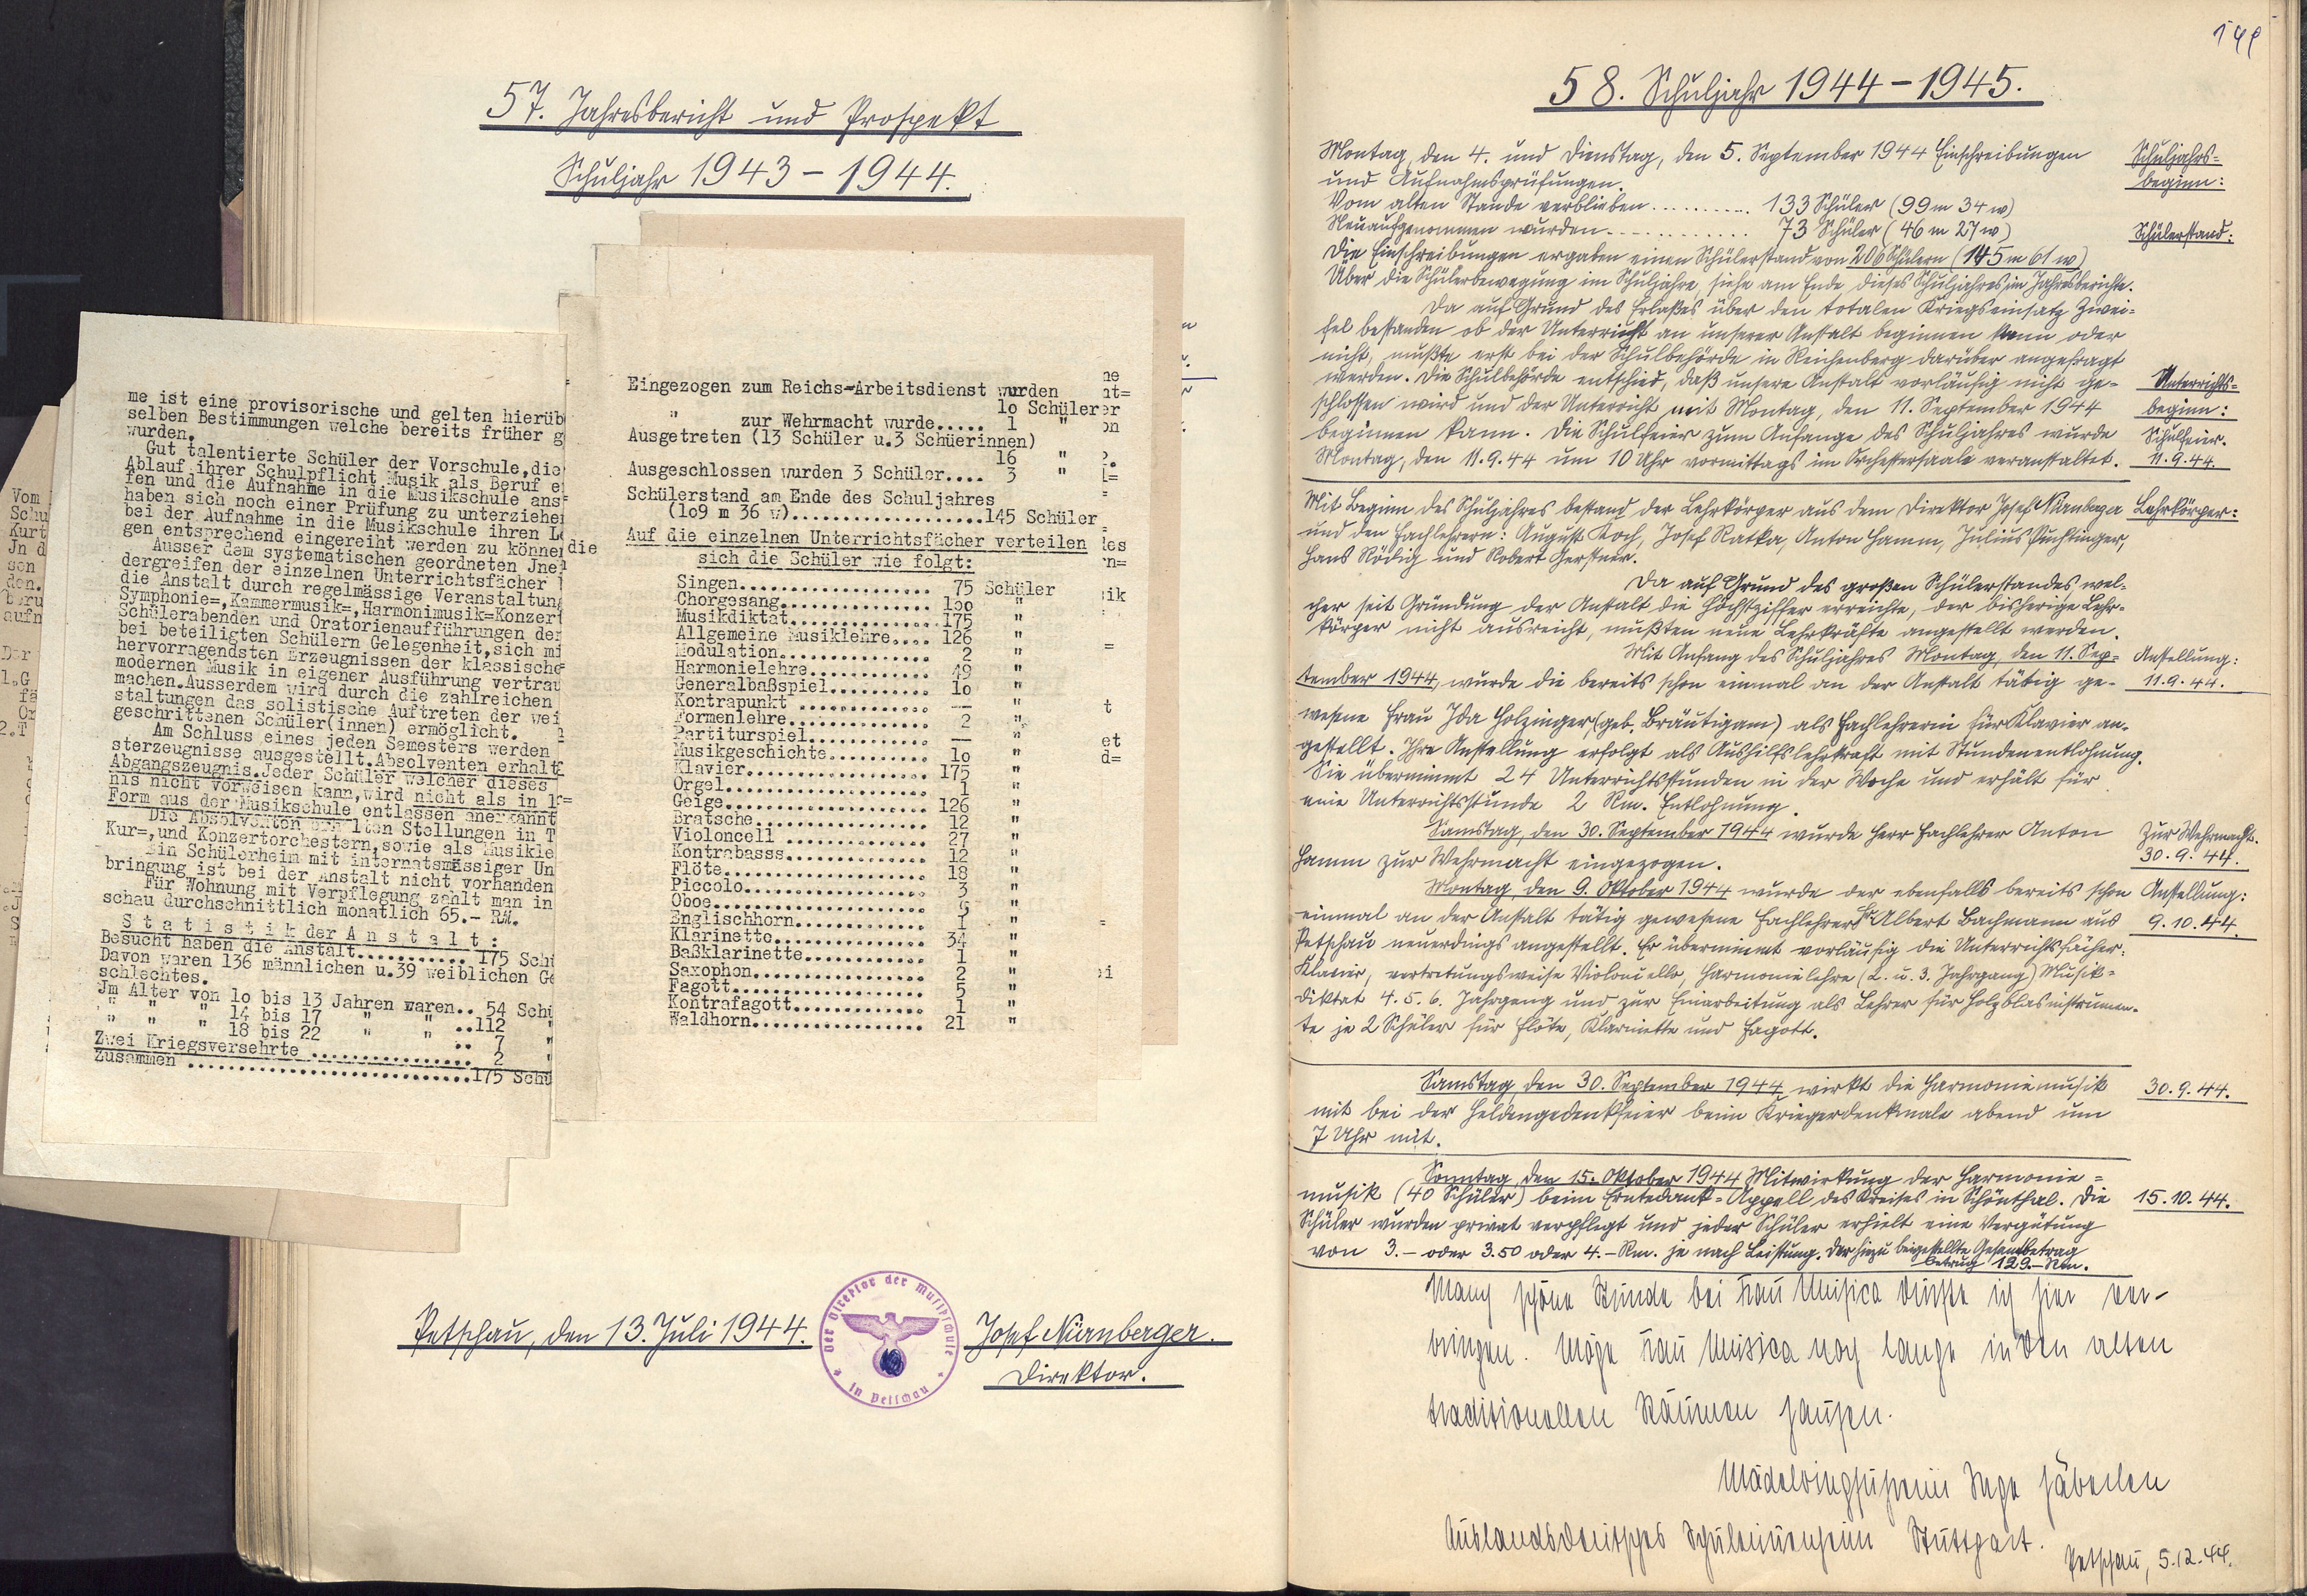 57. Jahresbericht und Prospekt
Schuljahr 1943 - 1944.
me ist eine provisorische und gelten hierüb
selben Bestimmungen welche bereits früher g
wurden.
Gut talentierte Schüler der Vorschule,die
Ablauf ihrer Schulpflicht Musik als Beruf e
fen und die Aufnahme in die Musikschule ans
haben sich noch einer Prüfung zu unterziehe
bei der Aufnahme in die Musikschule ihren L
gen entsprechend eingereiht werden zu könne
Ausser dem systematischen geordneten Jne
dergreifen der einzelnen Unterrichtsfächer
die Anstalt durch regelmässige Veranstaltung
Symphonie=,Kammermusik=,Harmonimusik=Konzert
Schülerabenden und Oratorienaufführungen der
bei beteiligten Schülern Gelegenheit,sich mi
hervorragendsten Erzeugnissen der klassische
modernen Musik in eigener Ausführung vertrau
machen.Ausserdem wird durch die zahlreichen
staltungen das solistische Auftreten der wei
geschrittenen Schüler(innen) ermöglicht.
Am Schluss eines jeden Semesters werden
sterzeugnisse ausgestellt.Absolventen erhalt
Abgangszeugnis.Jeder Schüler welcher dieses
nis nicht vorweisen kann,wird nicht als in
Form aus der Musikschule entlassen anerkannt
Die Absolventen Stellungen in T
Kur=,und Konzertorchestern,sowie als Musikle
Ein Schülerheim mit internatsmässiger Un
bringung ist bei der Anstalt nicht vorhanden
Für Wohnung mit Verpflegung zahlt man in
schau durchschnittlich monatlich 65.- RM.
S t a t i s t i k der A n s t a l t :
Besucht haben die Anstalt............ 175 Schü
Davon waren 136 männlichen u.39 weiblichen Ge
schlechtes.
Jm Alter von 1o bis 13 Jahren waren.. 54 Schü
" " " 14 bis 17 " " ..112 "
" " " 18 bis 22 " " .. 7 "
Zwei Kriegsversehrte ................ 2 "
Zusammen ............................175 Schü
Eingezogen zum Reichs=Arbeitsdienst wurden
1o Schüler
" zur Wehrmacht wurde..... 1 "
Ausgetreten (13 Schüler u.3 Schüerinnen)
16 "
Ausgeschlossen wurden 3 Schüler.... 3 "
Schülerstand am Ende des Schuljahres
(1o9 m 36 w)...................145 Schüler
Auf die einzelnen Unterrichtsfächer verteilen
sich die Schüler wie folgt:
Singen................... 75 Schüler
Chorgesang............... 1oo "
Musikdiktat..............175 "
Allgemeine Musiklehre.... 126 "
Modulation............... 2 "
Harmonielehre............ 49 "
Generalbaßspiel.......... 1o "
Kontrapunkt ............. — "
Formenlehre.............. 2 "
Partiturspiel............ — "
Musikgeschichte.......... 1o "
Klavier..................175 "
Orgel.................... 1 "
Geige.................... 126 "
Bratsche................. 12 "
Violoncell .............. 27 "
Kontrabasss.............. 12 "
Flöte.................... 18 "
Piccolo.................. 3 "
Oboe..................... "
Englischhorn............. 1 "
Klarinette............... 34 "
Baßklarinette............ 1 "
Saxophon................. 2 "
Fagott................... 5 "
Kontrafagott............. 1 "
Waldhorn................. 21 "
Petschau, den 13. Juli 1944.
Der Direktor der Musikschule
in Petschau
Josef Nürnberger.
Direktor.
58. Schuljahr 1944 - 1945.
Montag, den 4. und Dienstag, den 5. September 1944 Einschreibungen
und Aufnahmsprüfungen.
Schuljahrs=
beginn:
Vom alten Stande verblieben .......... 133 Schüler (99 m 34 w)
Neuaufgenommen wurden ............. 73 Schüler (46 m 27 w)
Schülerstand:
Die Einschreibungen ergaben einen Schülerstand von 206 Schülern (145 m 61 w)
Über die Schülerbewegung im Schuljahre, siehe am Ende dieses Schuljahres im Jahresberichte.
Da auf Grund des Erlaßes über den totalen Kriegseinsatz Zwei=
fel bestanden ob der Unterricht an unserer Anstalt beginnen kann oder
nicht, mußte erst bei der Schulbehörde in Reichenberg darüber angefragt
werden. Die Schulbehörde entschied, daß unsere Anstalt vorläufig nicht ge=
schlossen wird und der Unterricht mit Montag, den 11. September 1944
beginnen kann. Die Schulfeier zum Anfange des Schuljahres wurde
Montag, den 11.9.44 um 10 Uhr vormittags im Orchestersaale veranstaltet.
Unterrichts=
beginn:
Schulfeier.
11.9.44.
Mit Beginn des Schuljahres bestand der Lehrkörper aus dem Direktor Josef Nürnberger
und den Fachlehrern: August Koch, Josef Ratka, Anton Hamm, Julius Puchtinger,
Hans Rödig und Robert Gerstner.
Lehrkörper:
Da auf Grund des großen Schülerstandes, wel=
cher seit Gründung der Anstalt die Höchstziffer erreichte, der bisherige Lehr=
körper nicht ausreicht, mußten neue Lehrkräfte angestellt werden.
Mit Anfang des Schuljahres Montag, den 11. Sep=
tember 1944, wurde die bereits schon einmal an der Anstalt tätig ge=
wesene Frau Ida Holzinger (geb. Bräutigam) als Fachlehrerin für Klavier an=
gestellt. Ihre Anstellung erfolgt als Aushilfslehrkraft mit Stundenentlohnung.
Sie übernimmt 24 Unterrichtsstunden in der Woche und erhält für
eine Unterrichtsstunde 2 Rm. Entlohnung.
Anstellung:
11.9.44.
Samstag, den 30. September 1944 wurde Herr Fachlehrer Anton
Hamm zur Wehrmacht eingezogen.
Zur Wehrmacht.
30.9.44.
Montag, den 9. Oktober 1944 wurde der ebenfalls bereits schon
einmal an der Anstalt tätig gewesene Fachlehrer Hr Albert Bachmann aus
Petschau neuerdings angestellt. Er übernimmt vorläufig die Unterrichtsfächer:
Klavier, vertretungsweise Violoncello, Harmonielehre (2. u. 3. Jahrgang) Musik=
diktat 4. 5. 6. Jahrgang und zur Einarbeitung als Lehrer für Holzblasinstrumen=
te je 2 Schüler für Flöte, Klarinette und Fagott.
Anstellung:
9.10.44.
Samstag, den 30. September 1944 wirkt die Harmoniemusik
mit bei der Heldengedenkfeier beim Kriegerdenkmale abend um
7 Uhr mit.
30.9.44.
Sonntag, den 15. Oktober 1944 Mitwirkung der Harmonie=
musik (40 Schüler) beim Erntedank=Appell des Kreises in Schönthal. Die
Schüler wurden privat verpflegt und jeder Schüler erhielt eine Vergütung
von 3.- oder 3.50 oder 4.- Rm. je nach Leistung. Der hiezu beigestellte Gesamtbetrag
betrug 129.- Rm.
15.10.44.
Manch schöne Stunde bei Frau Musica durfte ich hier ver-
bringen. Möge Frau Musica noch lange in den alten
traditionellen Räumen hausen.
Mädelringführerin Inge Häberlen
Auslandsdeutsches Schülerinnenheim Stuttgart.
Petschau, 5.12.44.